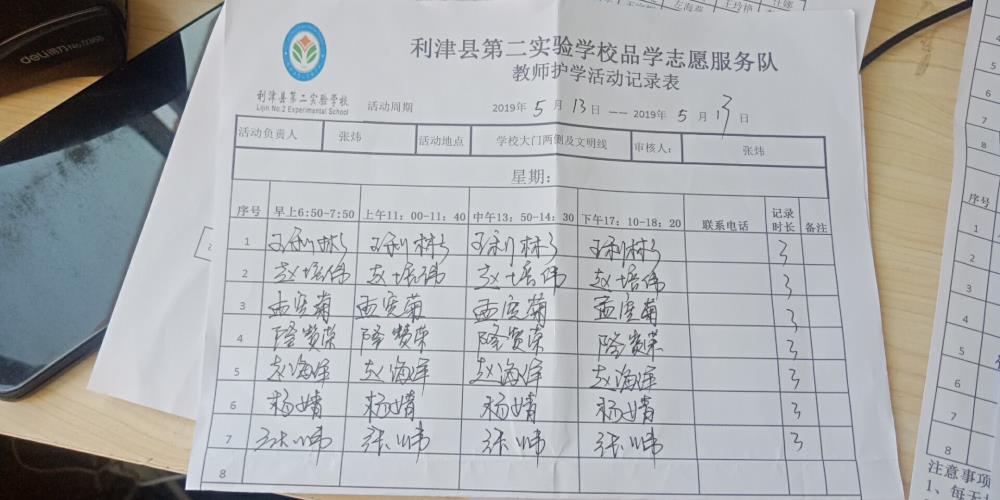 deli得力 No.0368
左海燕 王玲艳
利津县第二实验学校品学志愿服务队
教师护学活动记录表
利津县第二实验学校
Lijin No.2 Experimental School
活动周期 2019年 5 月 13 日 —— 2019年 5 月 17 日
活动负责人 张炜 活动地点 学校大门两侧及文明线 审核人: 张炜
星期:
序号 早上6:50-7:50 上午11:00-11:40 中午13:50-14:30 下午17:10-18:20 联系电话 记录时长 备注
1 王利彬 王利彬 王利彬 王利彬 3
2 赵培伟 赵培伟 赵培伟 赵培伟 3
3 孟宪菊 孟宪菊 孟宪菊 孟宪菊 3
4 隆赞荣 隆赞荣 隆赞荣 隆赞荣 3
5 赵海洋 赵海洋 赵海洋 赵海洋 3
6 杨婧 杨婧 杨婧 杨婧 3
7 张炜 张炜 张炜 张炜 3
8
5
6
7
8
序号
1
2
3
4
5
6
7
8
注意事项
1、每天